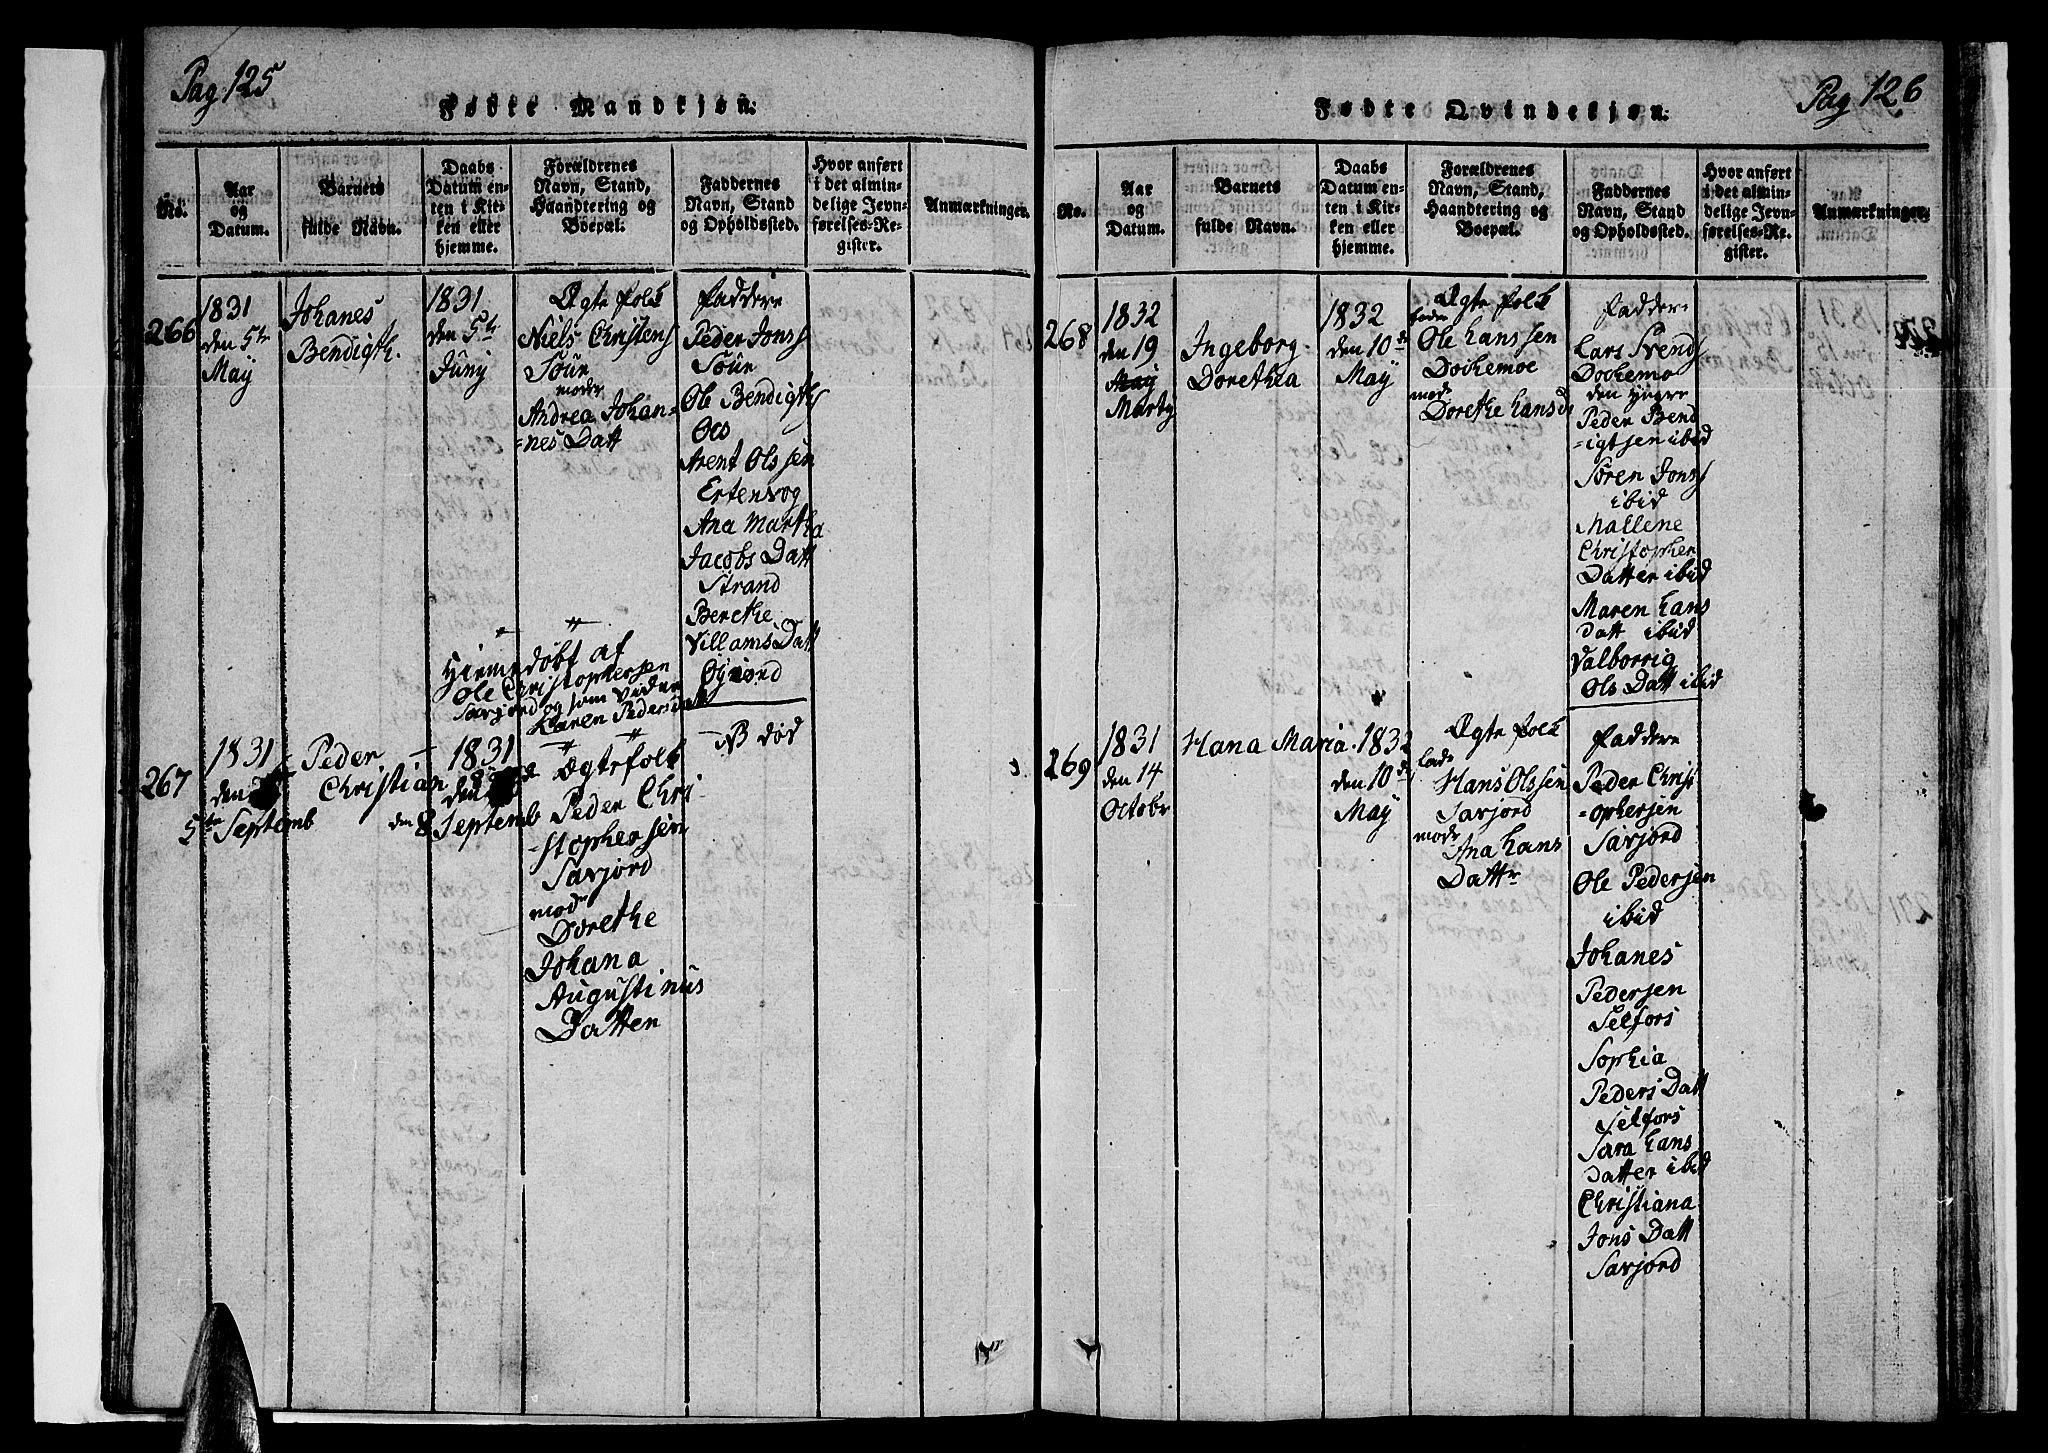 Pag 125
Fødte Mandkjøn.
No.
Aar
og
Datum.
Barnets
fulde Navn.
Daabs
Datum en-
ten i Kir-
ken eller
hjemme.
Forældrenes
Navn, Stand,
Haandtering og
Boepæl.
Faddernes
Navn, Stand
og Opholdssted.
Hvor anført
i det almin-
delige Jevn-
førelses-Re-
gister.
Anmærkninger.
266
1831
den 5te
May
Johanes
Bendigth.
1831
den 5te
Juny
Ægte folk
Niels Christens
moder
Andrea Johan-
=nes Datt
Faddere
Peder Jons
Ole Bendigths
Arent Olssen
Ertensvog
Ana Martha
Jacobs Datt
Strand
Berethe
Villams Datt
Hiemedøbt af
Ole Christophersen
Savjord og som vidne
Karen Pedersdatt
267
1831
den
5te Septemb
Peder
Christian
1831
den
den 8 Septemb
Ægtefolk
Peder Chri
-stophersen
Savjord
mod
Dorethe
Johana
Augustinus
Datter
NB død
Pag 126
Fødte Qvindekjøn.
No.
Aar
og
Datum.
Barnets
fulde Navn.
Daabs
Datum en-
ten i Kir-
ken eller
hjemme.
Forældrenes
Navn, Stand,
Haandtering og
Boepæl.
Faddernes
Navn, Stand
og Opholdssted.
Hvor anført
i det almin-
delige Jevn-
førelses-Re-
gister.
Anmærkninger.
268
1832
den 19
May
Marty
Ingeborg
Dorethea
1832
den 10de
May
Ægte folk
Ole Hanssen
Dochemoe
mod
Dorethe Hansd
Fadder
Lars Svends
Dochemo
den yngre
Peder Bend
=igtsen ibid
Søren Jons
ibid
Mallene
Christopher
Datter ibid
Maren Hans
Datt ibid
Valborrig
Ols Datt ibid
269
1831
den 14
Octobr
Hana Maria
1832
den 10de
May
Ægte folk
Hans Olssen
Savjord
modr
Ana Hans
Dattr
Faddere
Peder Christ
=ophersen
Savjord
Ole Pedersen
ibid
Johanes
Pedersen
Selfors
Sophia
Peders Datt
Selfors
Sara Hans
Datter ibid
Christiana
Jons Datt
Savjord